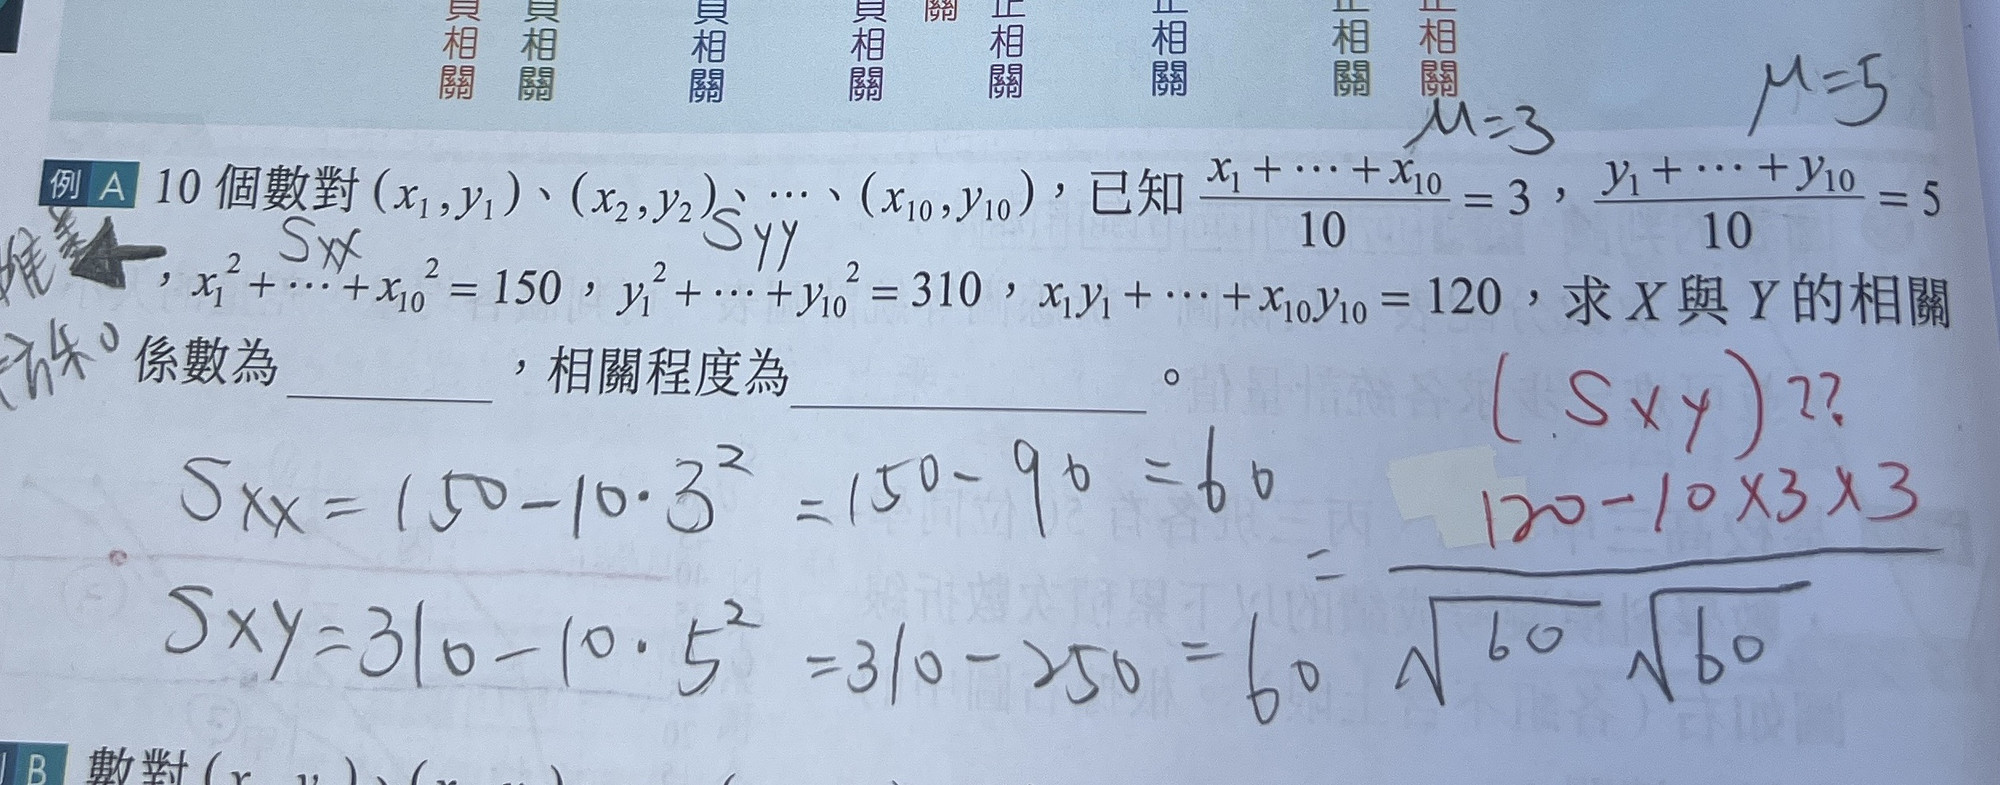 負相關 負相關 負相關 負相關 關 正相關 正相關 正相關 正相關
μ=5
μ=3
例 A 10 個數對 (x₁,y₁)、(x₂,y₂)、⋯、(x₁₀,y₁₀),已知 (x₁+⋯+x₁₀)/10 = 3,(y₁+⋯+y₁₀)/10 = 5
Sxx Syy
,x₁²+⋯+x₁₀² = 150,y₁²+⋯+y₁₀² = 310,x₁y₁+⋯+x₁₀y₁₀ = 120,求 X 與 Y 的相關
係數為______,相關程度為__________。
(Sxy)??
Sxx = 150-10·3² = 150-90 = 60
Sxy = 310-10·5² = 310-250 = 60
= (120-10×3×3)/(√60 √60)
B 數對(